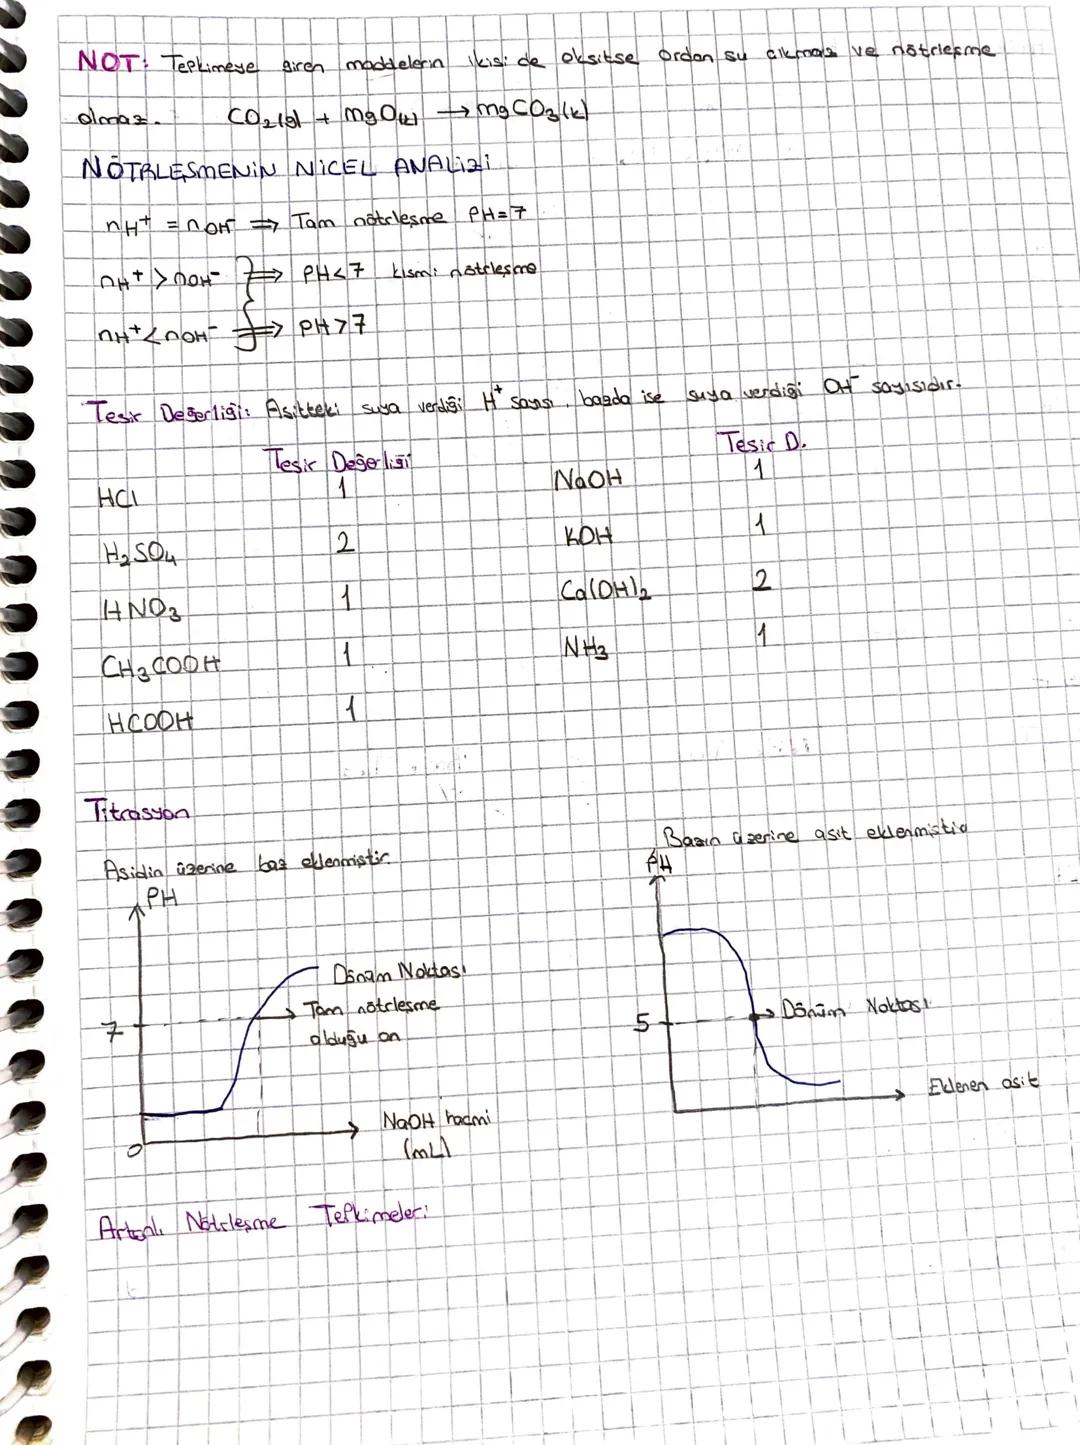 NOT: Tepkimeye giren maddelerin ikisi de oksitse ordan su çıkmaz ve nötrleşme
olmaz. CO2(g) + MgO(k) → MgCO3(k)
NÖTRLEŞMENİN NİCEL ANALİZİ
nH+ = nOH- ⇒ Tam nötrleşme PH=7
nH+ > nOH- ⇒ PH<7 kısmi nötrleşme
nH+ < nOH- ⇒ PH>7
Tesir Değerliği: Asitteki suya verdiği H+ sayısı, bazda ise suya verdiği OH- sayısıdır.
Tesir Değerliği Tesir D.
HCl 1 NaOH 1
H2SO4 2 KOH 1
HNO3 1 Ca(OH)2 2
CH3COOH 1 NH3 1
HCOOH 1
Titrasyon
Asidin üzerine baz eklenmiştir.
PH
Dönüm Noktası
Tam nötrleşme
olduğu an
7
0
NaOH hacmi
(mL)
Bazın üzerine asit eklenmiştir
PH
5
Dönüm Noktası
Eklenen asit
Artanlı Nötrleşme Tepkimeleri